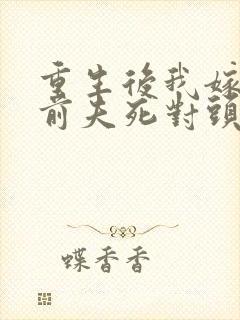 重生後我嫁
前夫死對頭
蝶香香